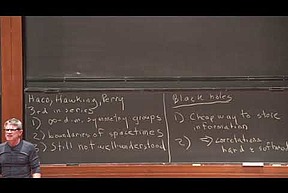 Haco, Hawking, Perry
3rd in series
1) ∞-dim. symmetry groups
2) boundaries of spacetimes
3) Still not well understood
Black holes
1) Cheap way to store
information
2) ⇒ correlations
hard & soft